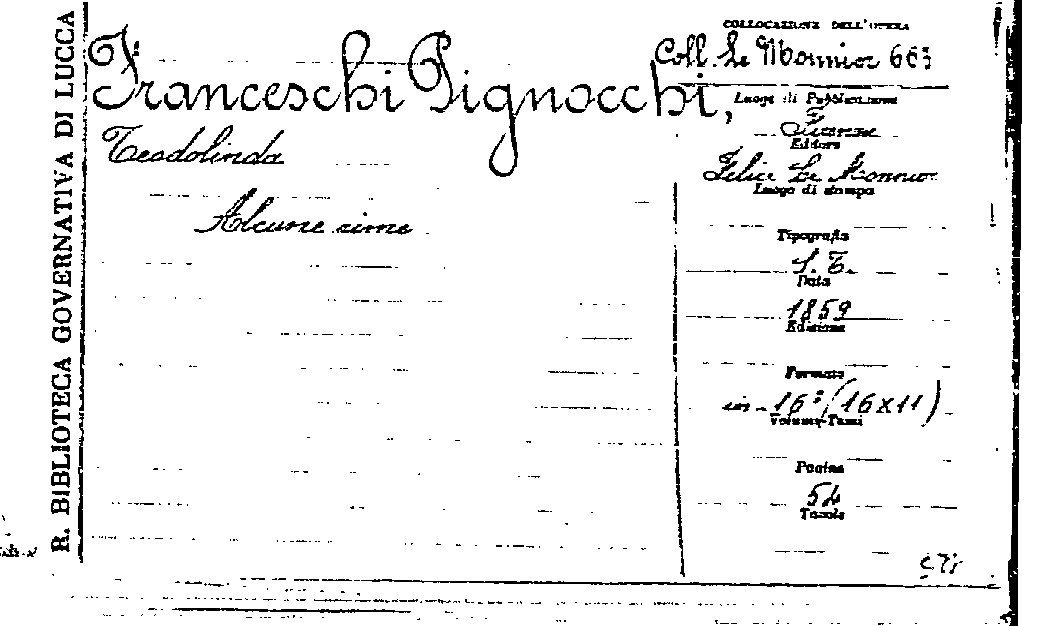 R. BIBLIOTECA GOVERNATIVA DI LUCCA
Franceschi Pignocchi,
Teodolinda
Alcune rime
COLLOCAZIONE DELL'OPERA
Coll. Le Monnier 663
Luogo di Pubblicazione
Firenze
Editore
Felice Le Monnier
Luogo di stampa
Tipografia
S. T.
Data
1859
Edizione
Formato
in-16° (16x11)
Volumi-Tomi
Pagine
54
Tavole